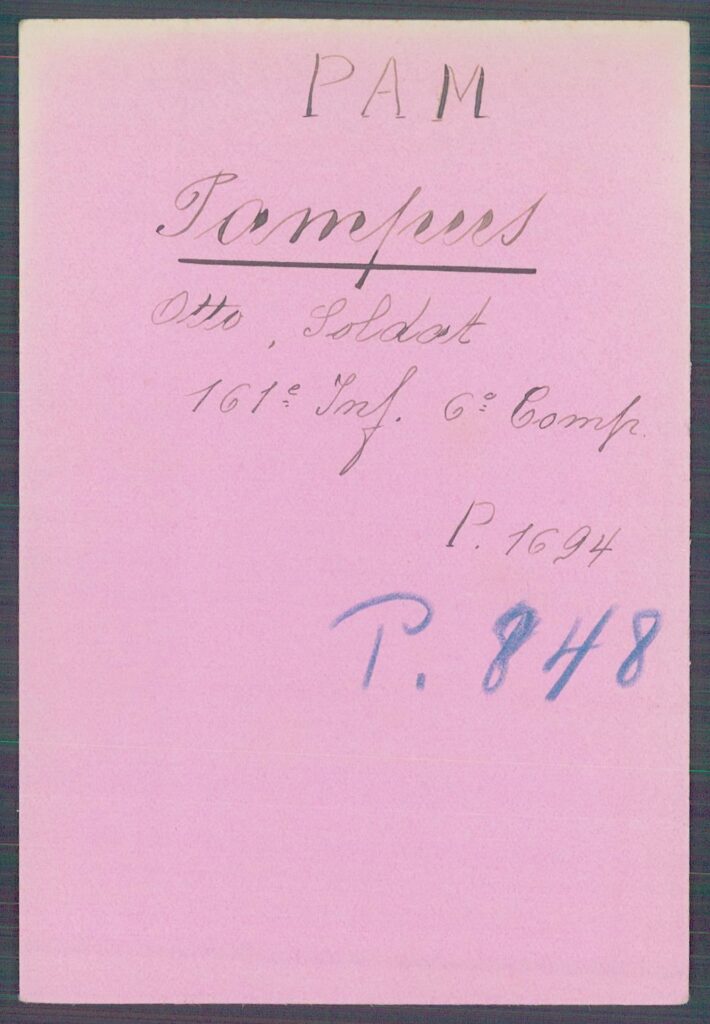 PAM
Pampus
Otto, Soldat
161e Inf. 6e Comp.
P. 1694
P. 848